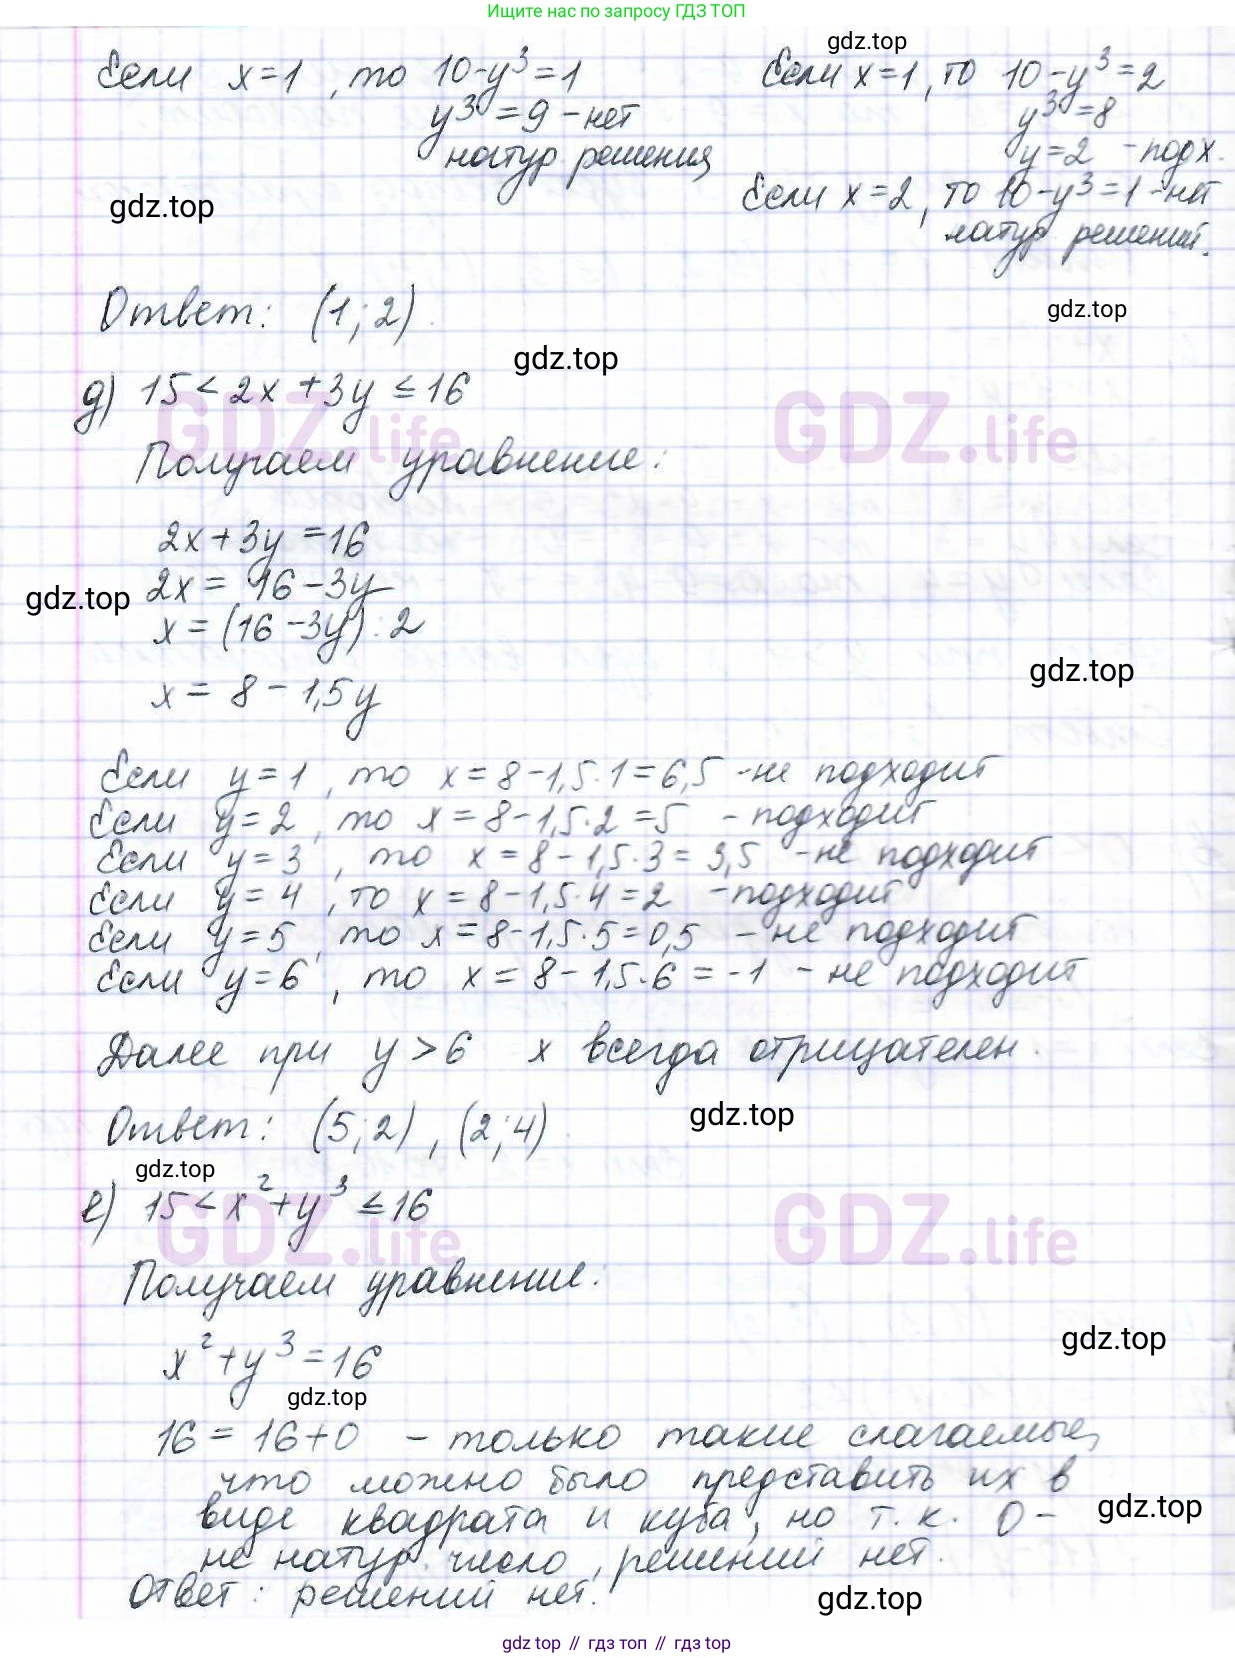 Ищите нас по запросу ГДЗ ТОП
Если x=1, то 10-y³=1
y³=9 - нет
натур. решения
gdz.top
Если x=1, то 10-y³=2
y³=8
y=2 - подх.
Если x=2, то 10-y³=1 - нет
натур. решений.
gdz.top
Ответ: (1; 2).
gdz.top
gdz.top
д) 15<2x+3y≤16
GDZ.life
GDZ.life
Получаем уравнение:
2x+3y=16
2x= 16-3y
gdz.top
x=(16-3y):2
gdz.top
x= 8-1,5y
Если y=1, то x=8-1,5·1=6,5 -не подходит
Если y=2, то x=8-1,5·2=5 - подходит
Если y=3, то x=8-1,5·3=3,5 -не подходит
Если y=4, то x=8-1,5·4=2 -подходит
Если y=5, то x=8-1,5·5=0,5 - не подходит
Если y=6, то x=8-1,5·6=-1 - не подходит
Далее при y>6 x всегда отрицателен.
Ответ: (5; 2), (2; 4).
gdz.top
gdz.top
е) 15<x²+y³≤16
GDZ.life
GDZ.life
Получаем уравнение:
x²+y³=16
gdz.top
gdz.top
16=16+0 - только такие слагаемые,
что можно было представить их в
виде квадрата и куба, но т.к. 0-
gdz.top
не натур. число, решений нет.
Ответ: решений нет.
gdz.top
gdz top // гдз топ // гдз top